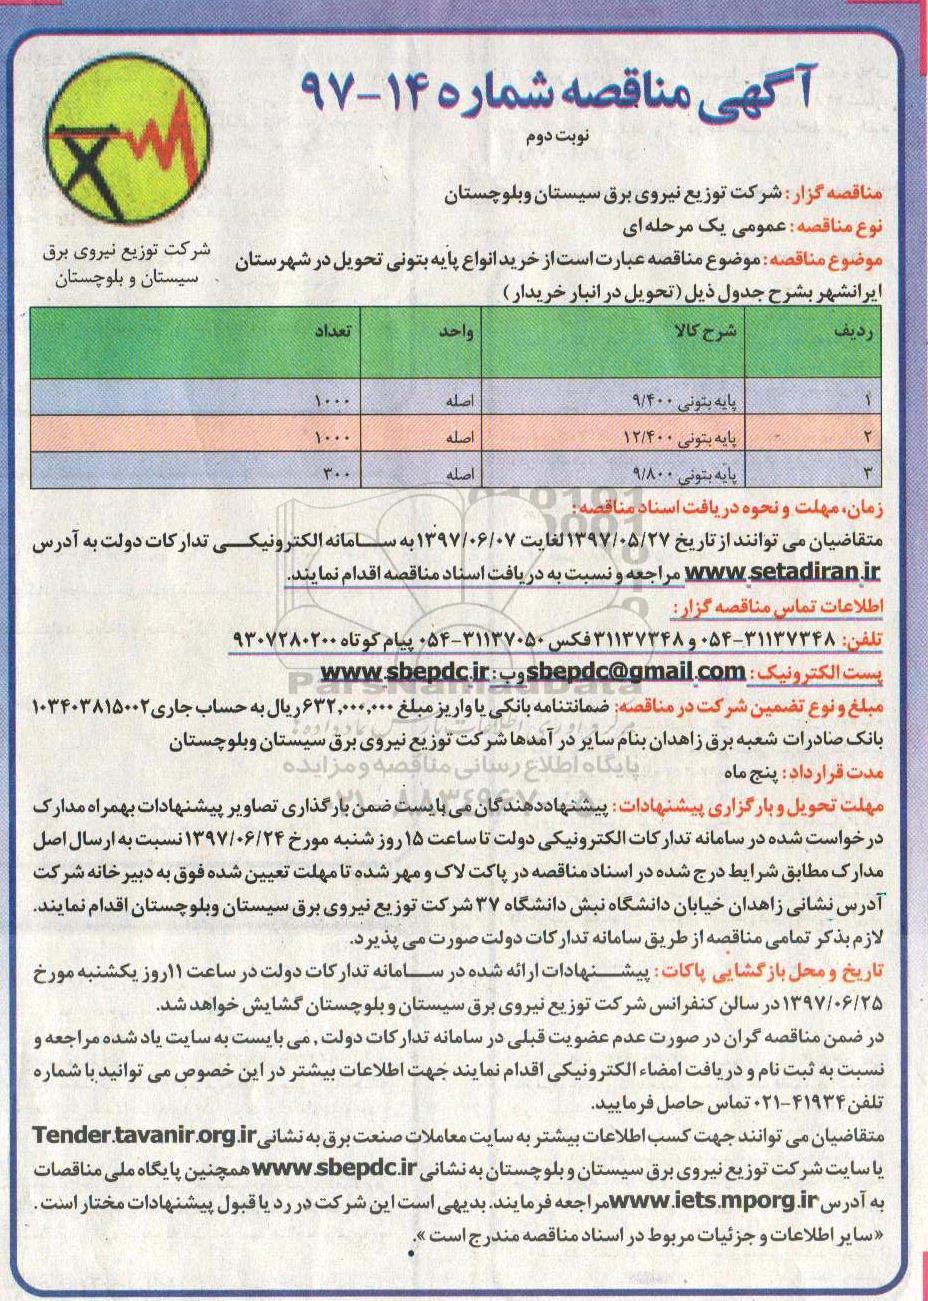 آگهی مناقصه شماره ۱۴-۹۷
نوبت دوم
شرکت توزیع نیروی برق
سیستان و بلوچستان
مناقصه گزار: شرکت توزیع نیروی برق سیستان وبلوچستان
نوع مناقصه: عمومی یک مرحله ای
موضوع مناقصه: موضوع مناقصه عبارت است از خرید انواع پایه بتونی تحویل در شهرستان
ایرانشهر بشرح جدول ذیل (تحویل در انبار خریدار)
ردیف شرح کالا واحد تعداد
۱ پایه بتونی ۹/۴۰۰ اصله ۱۰۰۰
۲ پایه بتونی ۱۲/۴۰۰ اصله ۱۰۰۰
۳ پایه بتونی ۹/۸۰۰ اصله ۳۰۰
زمان، مهلت و نحوه دریافت اسناد مناقصه:
متقاضیان می توانند از تاریخ ۱۳۹۷/۰۵/۲۷ لغایت ۱۳۹۷/۰۶/۰۷ به سامانه الکترونیکی تدارکات دولت به آدرس
www.setadiran.ir مراجعه و نسبت به دریافت اسناد مناقصه اقدام نمایند.
اطلاعات تماس مناقصه گزار:
تلفن: ۳۱۱۳۷۳۴۸-۰۵۴ و ۳۱۱۳۷۳۴۸ فکس ۳۱۱۳۷۰۵۰-۰۵۴ پیام کوتاه ۹۳۰۷۲۸۰۲۰۰
پست الکترونیک: sbepdc@gmail.com وب: www.sbepdc.ir
ParsNamadData
مبلغ و نوع تضمین شرکت در مناقصه: ضمانتنامه بانکی یا واریز مبلغ ۶۳۲,۰۰۰,۰۰۰ ریال به حساب جاری ۱۰۳۴۰۳۸۱۵۰۰۲
بانک صادرات شعبه برق زاهدان بنام سایر در آمدها شرکت توزیع نیروی برق سیستان وبلوچستان
پایگاه اطلاع رسانی مناقصه و مزایده
مدت قرارداد: پنج ماه
مهلت تحویل و بارگزاری پیشنهادات: پیشنهاددهندگان می بایست ضمن بارگذاری تصاویر پیشنهادات بهمراه مدارک
درخواست شده در سامانه تدارکات الکترونیکی دولت تا ساعت ۱۵ روز شنبه مورخ ۱۳۹۷/۰۶/۲۴ نسبت به ارسال اصل
مدارک مطابق شرایط درج شده در اسناد مناقصه در پاکت لاک و مهر شده تا مهلت تعیین شده فوق به دبیرخانه شرکت
آدرس نشانی زاهدان خیابان دانشگاه نبش دانشگاه ۳۷ شرکت توزیع نیروی برق سیستان وبلوچستان اقدام نمایند.
لازم بذکر تمامی مناقصه از طریق سامانه تدارکات دولت صورت می پذیرد.
تاریخ و محل بازگشایی پاکات: پیشنهادات ارائه شده در سامانه تدارکات دولت در ساعت ۱۱ روز یکشنبه مورخ
۱۳۹۷/۰۶/۲۵ در سالن کنفرانس شرکت توزیع نیروی برق سیستان و بلوچستان گشایش خواهد شد.
در ضمن مناقصه گران در صورت عدم عضویت قبلی در سامانه تدارکات دولت , می بایست به سایت یاد شده مراجعه و
نسبت به ثبت نام و دریافت امضاء الکترونیکی اقدام نمایند جهت اطلاعات بیشتر در این خصوص می توانید با شماره
تلفن ۴۱۹۳۴-۰۲۱ تماس حاصل فرمایید.
متقاضیان می توانند جهت کسب اطلاعات بیشتر به سایت معاملات صنعت برق به نشانی Tender.tavanir.org.ir
یا سایت شرکت توزیع نیروی برق سیستان و بلوچستان به نشانی www.sbepdc.ir همچنین پایگاه ملی مناقصات
به آدرس www.iets.mporg.ir مراجعه فرمایند. بدیهی است این شرکت در رد یا قبول پیشنهادات مختار است .
«سایر اطلاعات و جزئیات مربوط در اسناد مناقصه مندرج است ».